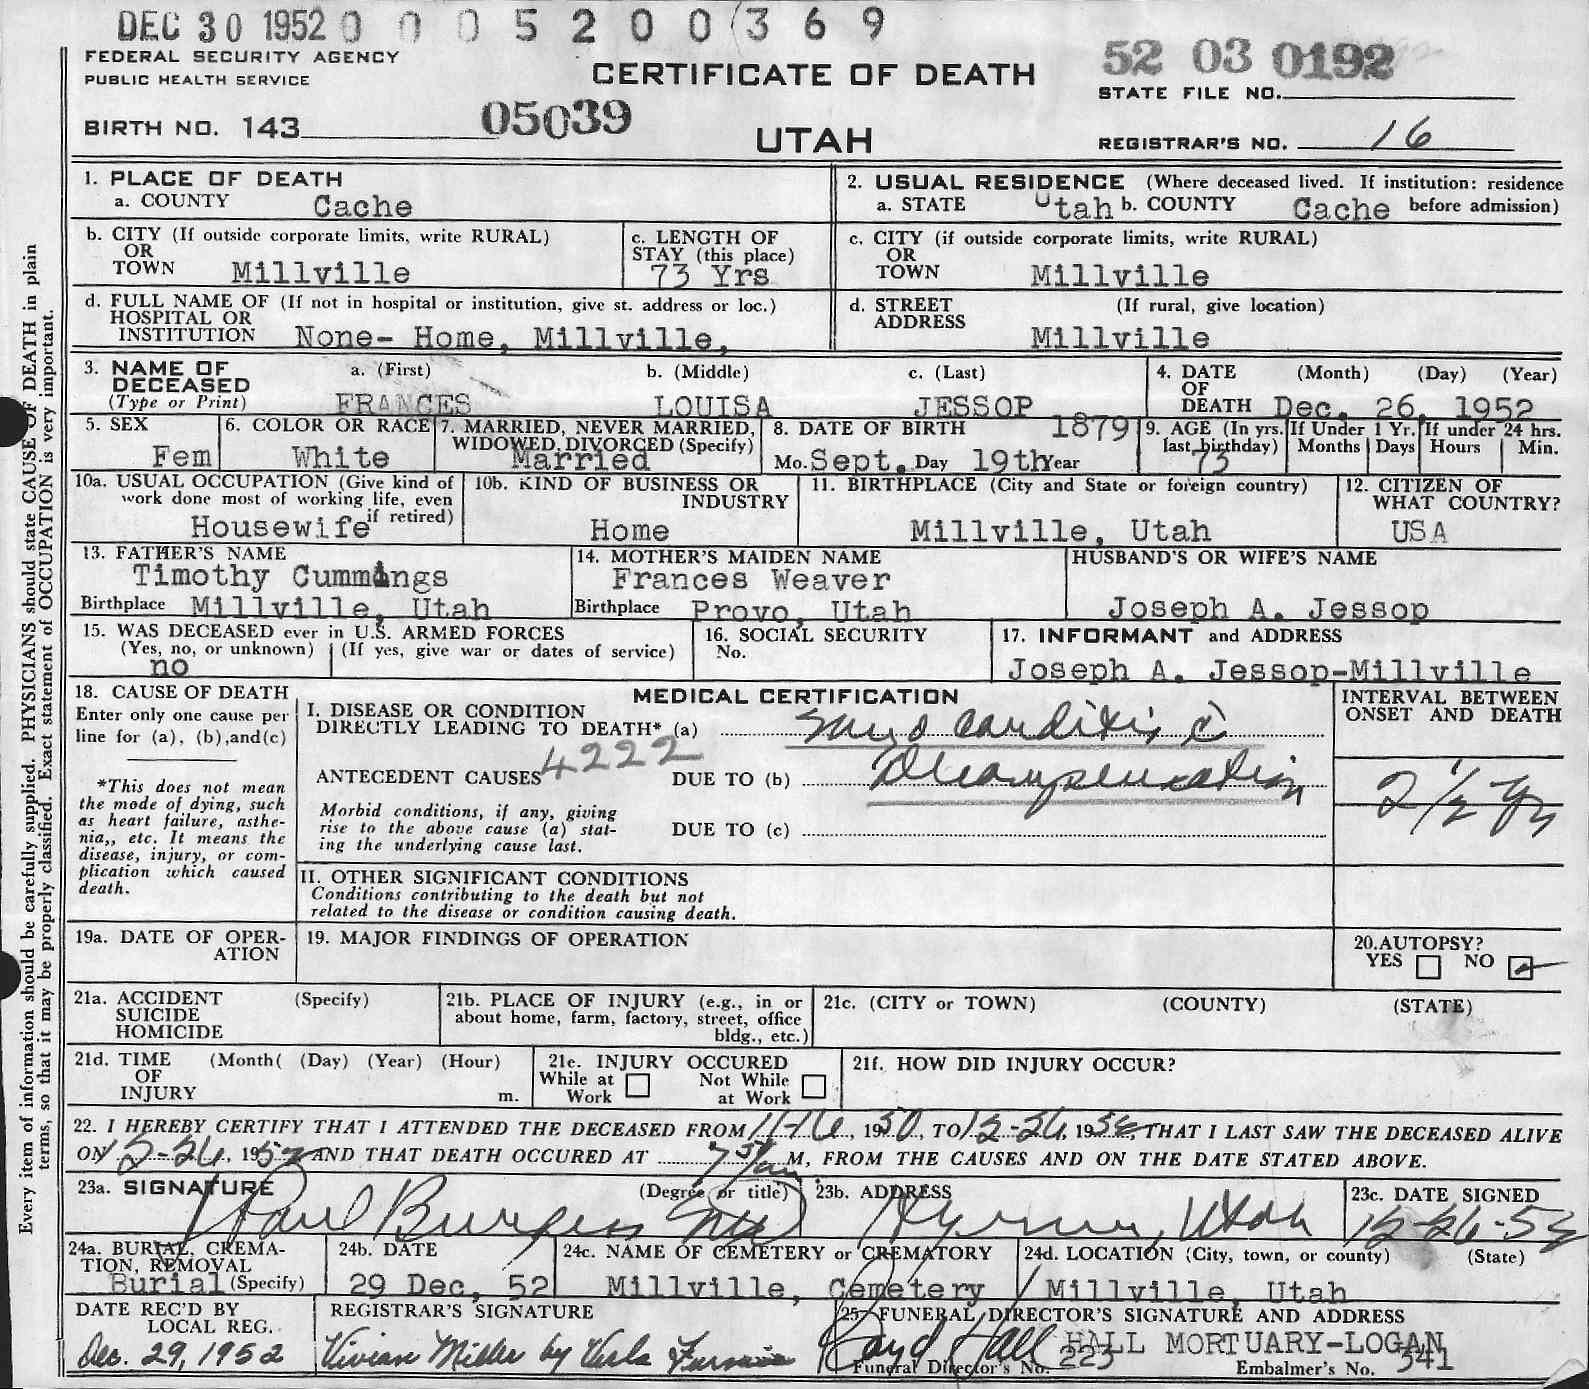 DEC 30 1952 0 0 0 5 2 0 0 3 6 9
FEDERAL SECURITY AGENCY
PUBLIC HEALTH SERVICE
CERTIFICATE OF DEATH
52 03 0192
STATE FILE NO.
BIRTH NO. 143 05039
UTAH
REGISTRAR'S NO. 16
1. PLACE OF DEATH
a. COUNTY Cache
2. USUAL RESIDENCE (Where deceased lived. If institution: residence
a. STATE Utah b. COUNTY Cache before admission)
b. CITY (If outside corporate limits, write RURAL)
OR
TOWN Millville
c. LENGTH OF
STAY (this place)
73 Yrs
c. CITY (if outside corporate limits, write RURAL)
OR
TOWN Millville
d. FULL NAME OF (If not in hospital or institution, give st. address or loc.)
HOSPITAL OR
INSTITUTION None- Home, Millville,
d. STREET (If rural, give location)
ADDRESS
Millville
3. NAME OF DECEASED
(Type or Print)
a. (First) b. (Middle) c. (Last)
FRANCES LOUISA JESSOP
4. DATE (Month) (Day) (Year)
OF
DEATH Dec. 26, 1952
5. SEX
Fem
6. COLOR OR RACE
White
7. MARRIED, NEVER MARRIED,
WIDOWED, DIVORCED (Specify)
Married
8. DATE OF BIRTH 1879
Mo. Sept. Day 19th Year
9. AGE (In yrs.
last birthday)
73
If Under 1 Yr.
Months Days
If under 24 hrs.
Hours Min.
10a. USUAL OCCUPATION (Give kind of
work done most of working life, even
Housewife if retired)
10b. KIND OF BUSINESS OR
INDUSTRY
Home
11. BIRTHPLACE (City and State or foreign country)
Millville, Utah
12. CITIZEN OF
WHAT COUNTRY?
USA
13. FATHER'S NAME
Timothy Cummings
Birthplace Millville, Utah
14. MOTHER'S MAIDEN NAME
Frances Weaver
Birthplace Provo, Utah
HUSBAND'S OR WIFE'S NAME
Joseph A. Jessop
15. WAS DECEASED ever in U.S. ARMED FORCES
(Yes, no, or unknown) (If yes, give war or dates of service)
no
16. SOCIAL SECURITY
No.
17. INFORMANT and ADDRESS
Joseph A. Jessop-Millville
18. CAUSE OF DEATH
Enter only one cause per
line for (a), (b),and(c)
*This does not mean
the mode of dying, such
as heart failure, asthe-
nia,, etc. It means the
disease, injury, or com-
plication which caused
death.
MEDICAL CERTIFICATION
I. DISEASE OR CONDITION
DIRECTLY LEADING TO DEATH* (a) Myocarditis c̄
4222
ANTECEDENT CAUSES DUE TO (b) Decompensation
Morbid conditions, if any, giving
rise to the above cause (a) stat-
ing the underlying cause last.
DUE TO (c)
INTERVAL BETWEEN
ONSET AND DEATH
2 1/2 yrs
II. OTHER SIGNIFICANT CONDITIONS
Conditions contributing to the death but not
related to the disease or condition causing death.
19a. DATE OF OPER-
ATION
19. MAJOR FINDINGS OF OPERATION
20.AUTOPSY?
YES NO
21a. ACCIDENT (Specify)
SUICIDE
HOMICIDE
21b. PLACE OF INJURY (e.g., in or
about home, farm, factory, street, office
bldg., etc.)
21c. (CITY or TOWN) (COUNTY) (STATE)
21d. TIME (Month( (Day) (Year) (Hour)
OF
INJURY m.
21e. INJURY OCCURED
While at Work Not While at Work
21f. HOW DID INJURY OCCUR?
22. I HEREBY CERTIFY THAT I ATTENDED THE DECEASED FROM 11-16, 1950, TO 12-26, 1952, THAT I LAST SAW THE DECEASED ALIVE
ON 12-26, 1952 AND THAT DEATH OCCURED AT M, FROM THE CAUSES AND ON THE DATE STATED ABOVE.
23a. SIGNATURE (Degree or title)
Paul Burgess MD
23b. ADDRESS
Hyrum, Utah
23c. DATE SIGNED
12-26-52
24a. BURIAL, CREMA-
TION, REMOVAL
Burial (Specify)
24b. DATE
29 Dec, 52
24c. NAME OF CEMETERY or CREMATORY
Millville, Cemetery
24d. LOCATION (City, town, or county) (State)
Millville, Utah
DATE REC'D BY
LOCAL REG.
Dec. 29, 1952
REGISTRAR'S SIGNATURE
Vivian Miller by Verla
25. FUNERAL DIRECTOR'S SIGNATURE AND ADDRESS
Boyd Hall HALL MORTUARY-LOGAN
Funeral Director's No. 223 Embalmer's No. 341
Every item of information should be carefully supplied. PHYSICIANS should state CAUSE OF DEATH in plain
terms, so that it may be properly classified. Exact statement of OCCUPATION is very important.